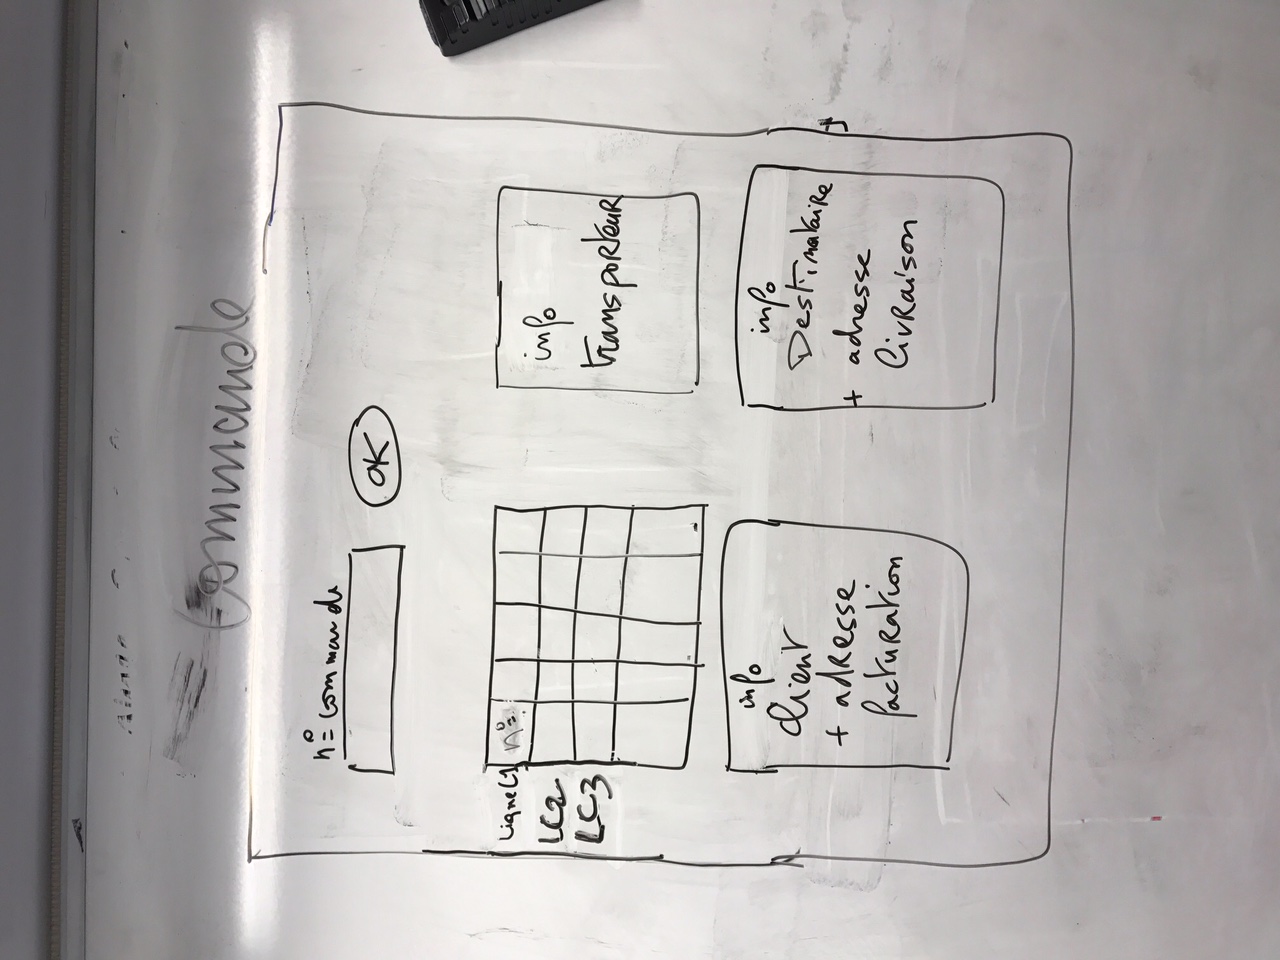 Commande
n° commande
OK
Ligne C1 n°
LC2
LC3
info
transporteur
info
Client
+ adresse
facturation
info
Destinataire
+ adresse
livraison